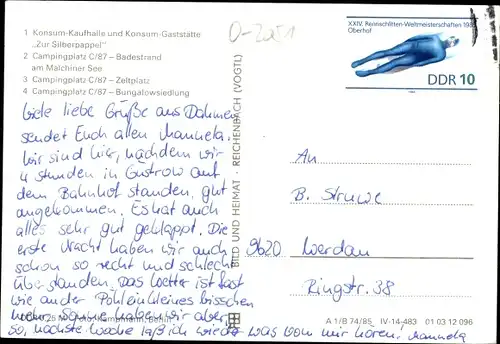 1 Konsum-Kaufhalle und Konsum-Gaststätte
„Zur Silberpappel"
2 Campingplatz C/87 – Badestrand
am Malchiner See
3 Campingplatz C/87 – Zeltplatz
4 Campingplatz C/87 – Bungalowsiedlung
XXIV. Rennschlitten-Weltmeisterschaften 1985
Oberhof
DDR 10
Viele liebe Grüße aus Dahmen
sendet Euch allen Manuela.
Wir sind hier, nachdem wir
4 Stunden in Güstrow auf
dem Bahnhof standen, gut
angekommen. Es hat auch
alles sehr gut geklappt. Die
erste Nacht haben wir auch
schon so recht und schlecht
überstanden. Das Wetter ist fast
wie an der Pöhl ein kleines bisschen
mehr Sonne haben wir aber,
so, nächste Woche laß ich wieder was von mir hören! Manuela
BILD UND HEIMAT · REICHENBACH (VOGTL)
An
B. Struwe
9620 Werdau
Ringstr. 38
A 1/B 74/85 IV-14-483 01 03 12 096